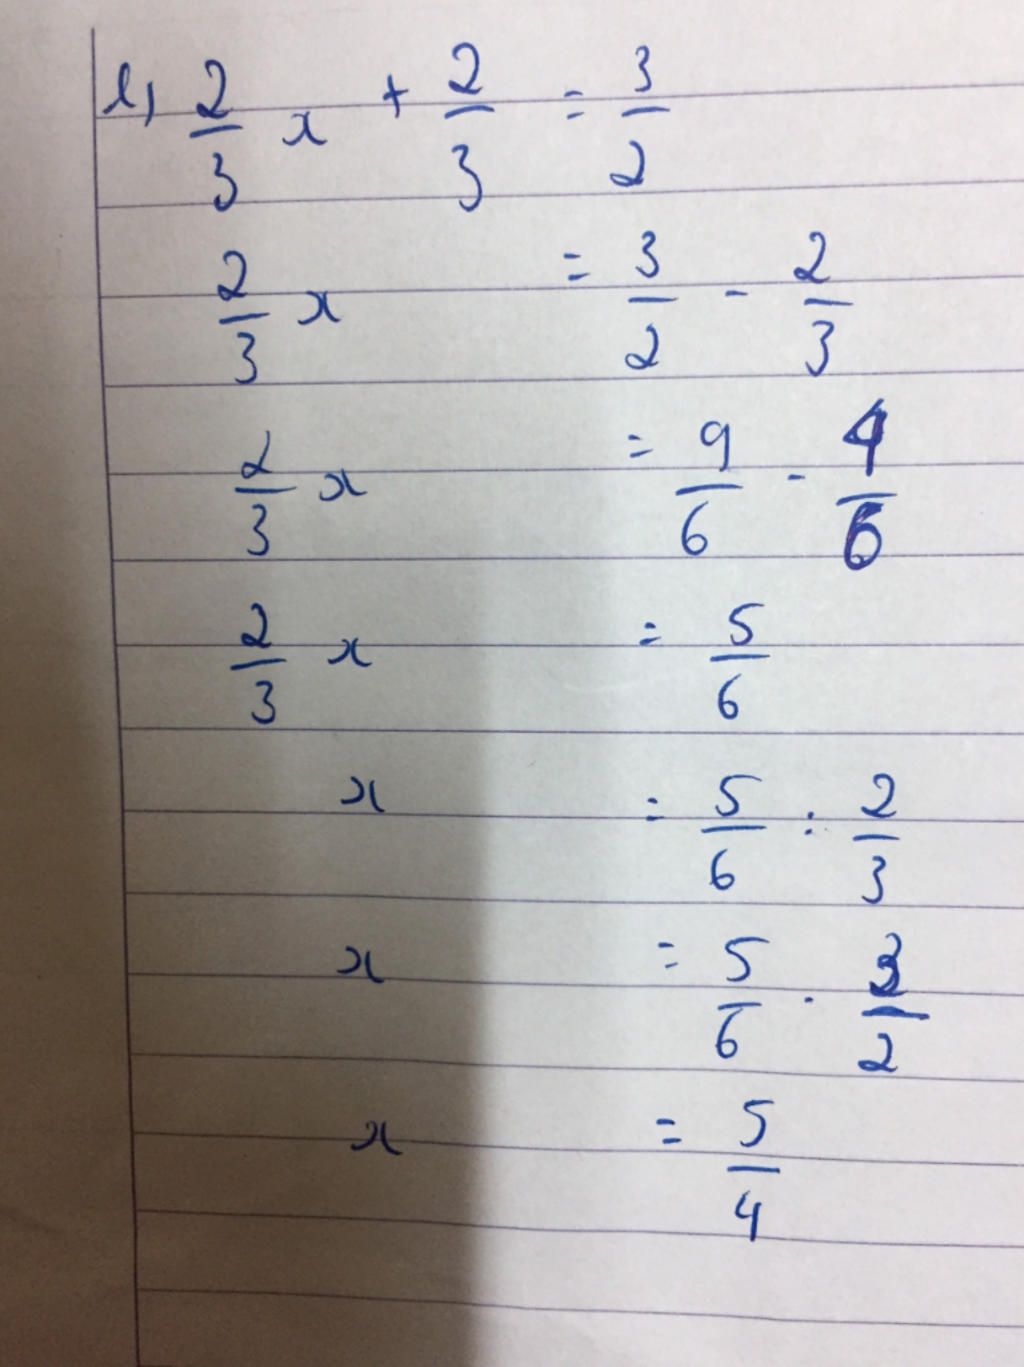 l, 2/3 x + 2/3 = 3/2
2/3 x = 3/2 - 2/3
2/3 x = 9/6 - 4/6
2/3 x = 5/6
x = 5/6 : 2/3
x = 5/6 . 3/2
x = 5/4